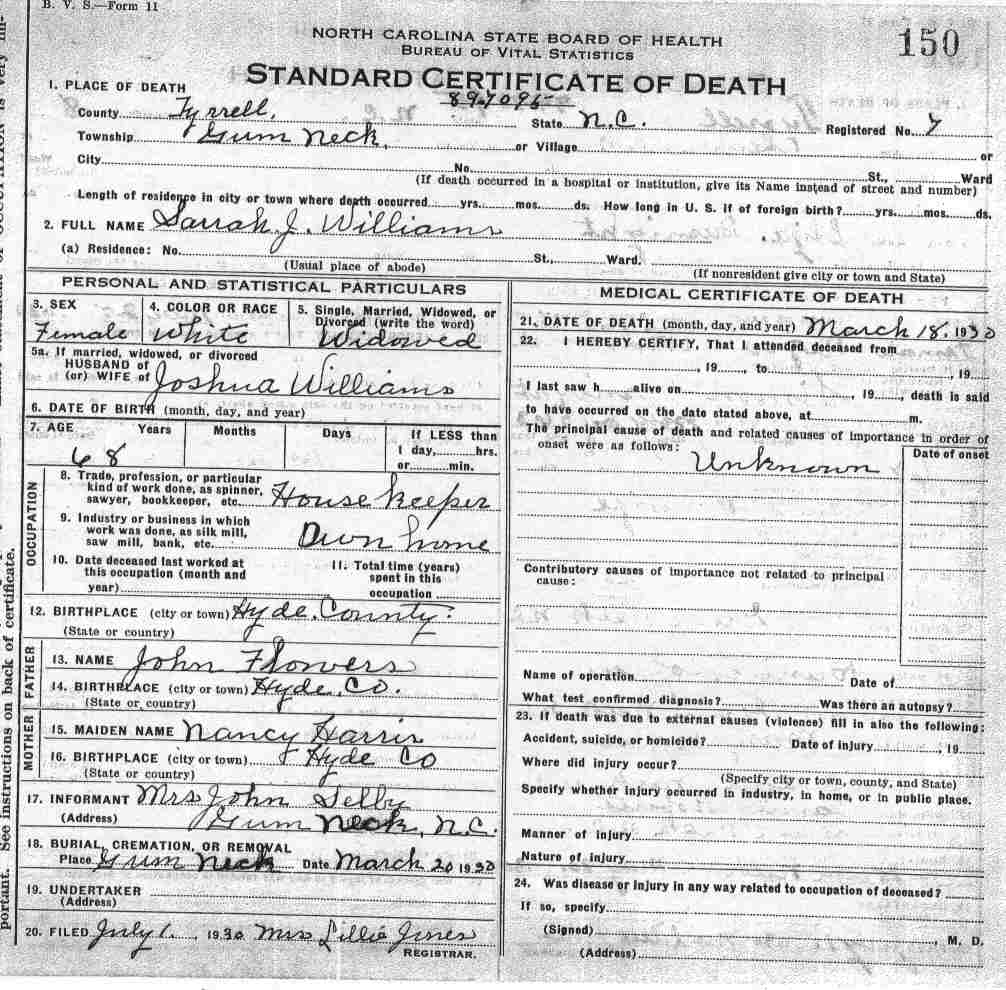 B. V. S.—Form 11
150
NORTH CAROLINA STATE BOARD OF HEALTH
BUREAU OF VITAL STATISTICS
STANDARD CERTIFICATE OF DEATH
1. PLACE OF DEATH
County Tyrrell, State N.C. Registered No. 7
Township Gum Neck, or Village or
City No. St., Ward
(If death occurred in a hospital or institution, give its Name instead of street and number)
Length of residence in city or town where death occurred yrs. mos. ds. How long in U. S. if of foreign birth? yrs. mos. ds.
2. FULL NAME Sarrah J. Williams
(a) Residence: No. St., Ward.
(Usual place of abode) (If nonresident give city or town and State)
PERSONAL AND STATISTICAL PARTICULARS
3. SEX 4. COLOR OR RACE 5. Single, Married, Widowed, or
Divorced (write the word)
Female White Widowed
5a. If married, widowed, or divorced
HUSBAND of
(or) WIFE of Joshua Williams
6. DATE OF BIRTH (month, day, and year)
7. AGE Years Months Days If LESS than
1 day, hrs.
68 or min.
OCCUPATION
8. Trade, profession, or particular
kind of work done, as spinner,
sawyer, bookkeeper, etc. House Keeper
9. Industry or business in which
work was done, as silk mill,
saw mill, bank, etc. Own home
10. Date deceased last worked at
this occupation (month and
year)
11. Total time (years)
spent in this
occupation
12. BIRTHPLACE (city or town) Hyde County
(State or country)
FATHER
13. NAME John Flowers
14. BIRTHPLACE (city or town) Hyde Co.
(State or country)
MOTHER
15. MAIDEN NAME Nancy Harris
16. BIRTHPLACE (city or town) Hyde Co
(State or country)
17. INFORMANT Mrs John Selby
(Address) Gum Neck, N.C.
18. BURIAL, CREMATION, OR REMOVAL
Place Gum Neck Date March 20 1930
19. UNDERTAKER
(Address)
20. FILED July 1, 1930 Mrs Lillie Jones
REGISTRAR.
MEDICAL CERTIFICATE OF DEATH
21. DATE OF DEATH (month, day, and year) March 18, 1930
22. I HEREBY CERTIFY, That I attended deceased from
, 19 , to , 19
I last saw h alive on , 19 , death is said
to have occurred on the date stated above, at m.
The principal cause of death and related causes of importance in order of
onset were as follows: Date of onset
Unknown
Contributory causes of importance not related to principal
cause:
Name of operation Date of
What test confirmed diagnosis? Was there an autopsy?
23. If death was due to external causes (violence) fill in also the following:
Accident, suicide, or homicide? Date of injury , 19
Where did injury occur?
(Specify city or town, county, and State)
Specify whether injury occurred in industry, in home, or in public place.
Manner of injury
Nature of injury
24. Was disease or injury in any way related to occupation of deceased?
If so, specify
(Signed) , M. D.
(Address)
portant. See instructions on back of certificate.